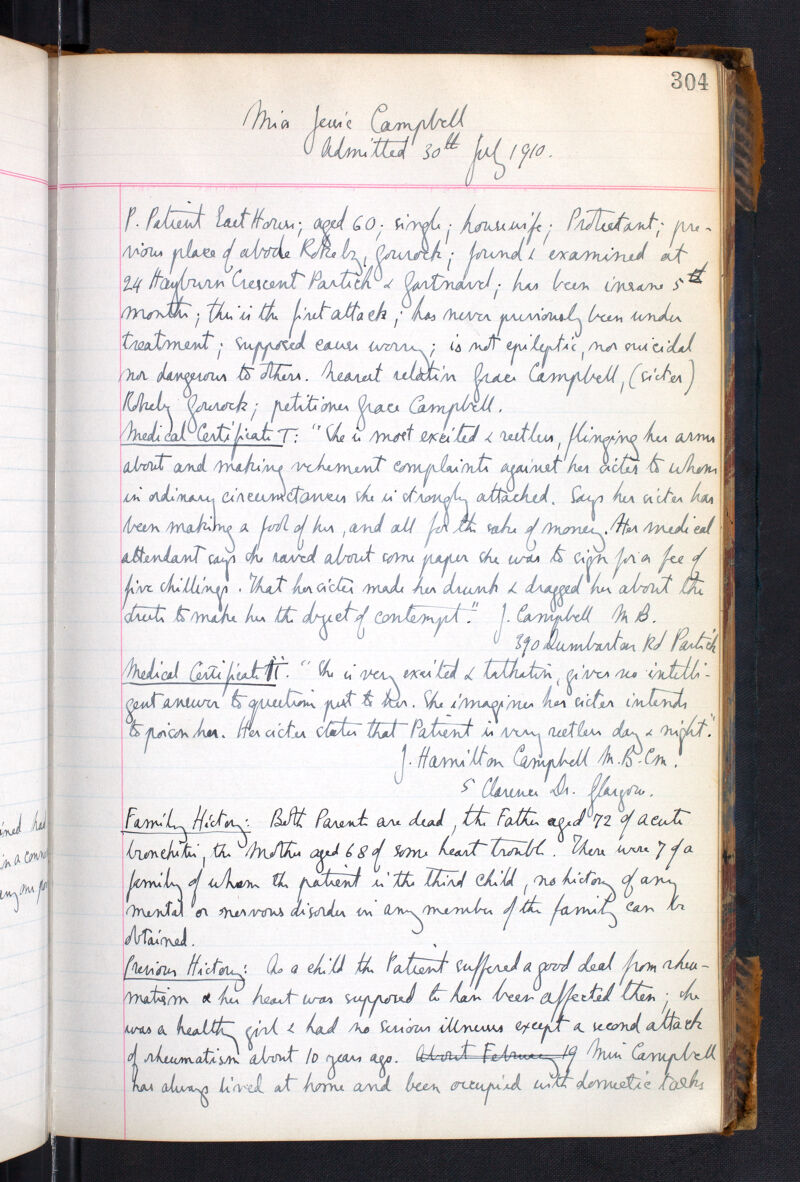 304
Miss Jessie Campbell
Admitted 30th July 1910.
P. Patient East House; aged 60; single; housewife; Protestant; pre-
vious place of abode Rokeby, Gourock; found & examined at
24 Hayburn Crescent Partick & Gartnavel; has been insane 5
months; this is the first attack; has never previously been under
treatment; supposed cause worry; is not epileptic, nor suicidal
nor dangerous to others. Nearest relation Grace Campbell, (sister)
Rokeby Gourock; petitioner Grace Campbell.
Medical Certificate I: "She is most excited & restless, flinging her arms
about and making vehement complaints against her sister to whom
in ordinary circumstances she is strongly attached. Says her sister has
been making a fool of her, and all for the sake of money. Her medical
attendant says she raved about some paper she was to sign for a fee of
five shillings. That her sister made her drunk & dragged her about the
streets to make her the object of contempt." J. Campbell M B.
390 Dumbarton Rd Partick
Medical Certificate II. "She is very excited & talkative, gives no intelli-
gent answer to questions put to her. She imagines her sister intends
to poison her. Her sister states that Patient is very restless day & night."
J. Hamilton Campbell M.B. Cm.
5 Clarence Dr. Glasgow.
Family History: Both Parents are dead, the Father aged 72 of acute
bronchitis, the Mother aged 68 of some heart trouble. There were 7 of a
family of whom the patient is the third child, no history of any
mental or nervous disorder in any member of the family can be
obtained.
Previous History: As a child the Patient suffered a good deal from rheu-
matism & her heart was supposed to have been affected then; she
was a healthy girl & had no serious illnesses except a second attack
of rheumatism about 10 years ago. About February 19 Miss Campbell
has always lived at home and been occupied with domestic tasks
ined had
in a conn
any one po